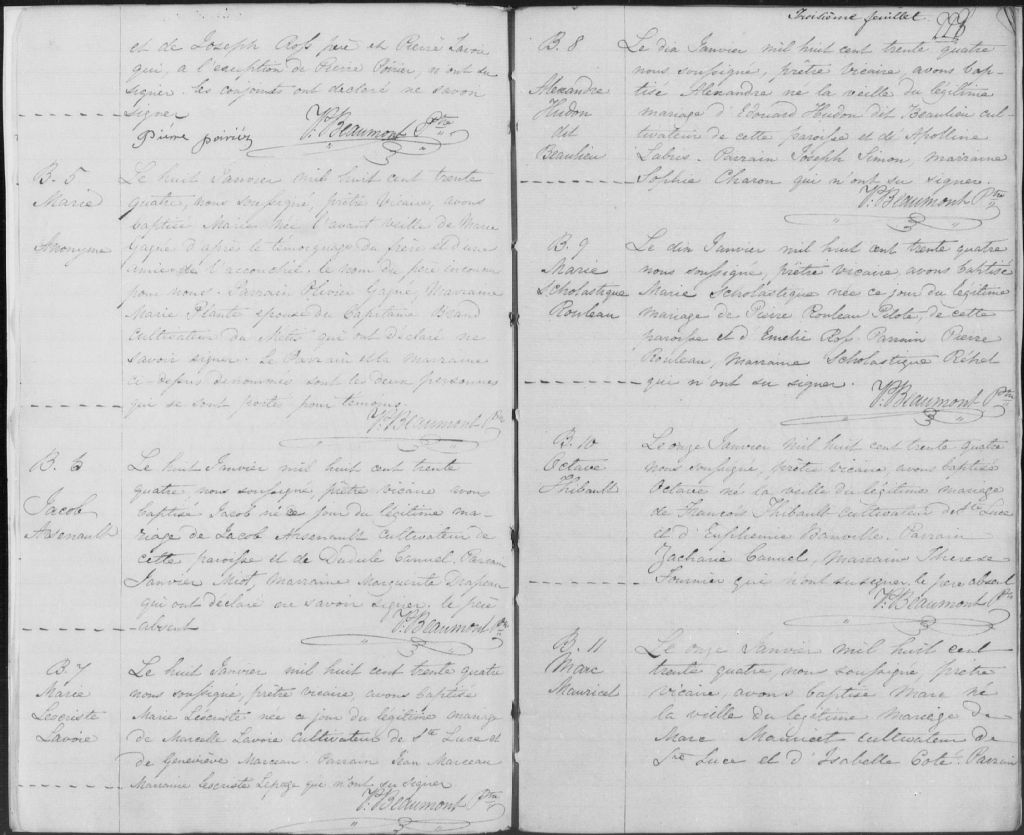 et de Joseph Ross père et Pierre Lavoie
qui, a l'exception de Pierre Poirier, n'ont su
signer. Les conjoints ont déclaré ne savoir
signer
Pierre poiriér V. P. Beaumont Ptre
B. 5
Marie
Anonyme
Le huit Janvier mil huit cent trente
quatre, nous soussigné, prêtre vicaire, avons
baptisé Marie née l'avant veille de Marie
Gagné d'après le témoignage du frère et d'une
amie de l'accouchée. le nom du père inconnu
pour nous. Parrain Olivier Gagné, Marraine
Marie Plante epouse du Capitaine Brand
Cultivateur de Métis qui ont déclaré ne
savoir signer. Le Parrain et la marraine
ci-dessus denommés sont les deux personnes
qui se sont porté pour témoins
V. P. Beaumont Ptre
B. 6
Jacob
Arsenault
Le huit Janvier mil huit cent trente
quatre, nous soussigné, prêtre vicaire avons
baptisé Jacob né ce jour du légitime ma-
riage de Jacob Arsenault Cultivateur de
cette paroisse et de Canuel. Parrain
Janvier Marraine Marguerite Drapeau
qui ont déclaré ne savoir signer. le père
absent V. P. Beaumont Ptre
B. 7
Marie
Lescriste
Lavoie
Le huit Janvier mil huit cent trente quatre
nous soussigné, prêtre vicaire, avons baptisé
Marie Lescriste née ce jour du légitime mariage
de Marcelle Lavoie Cultivateur de Ste Luce et
de Geneviève Marceau. Parrain Jean Marceau
Marraine Lescriste Lepage qui n'ont su signer
V. P. Beaumont Ptre
Troisième feuillet.
B. 8
Alexandre
Hudon
dit
Beaulieu
Le dix Janvier mil huit cent trente quatre
nous soussigné, prêtre vicaire, avons bap-
tisé Alexandre né la veille du légitime
mariage d'Edouard Hudon dit Beaulieu cul-
tivateur de cette paroisse et de Apolline
Labrie. Parrain Joseph Simon, marraine
Sophie Charon qui n'ont su signer.
V. P. Beaumont Ptre
B. 9
Marie
Scholastique
Rouleau
Le dix Janvier mil huit cent trente quatre
nous soussigné, prêtre vicaire, avons baptisé
Marie Scholastique née ce jour du légitime
mariage de Pierre Rouleau Pilote, de cette
paroisse et d'Emelie Ross Parrain Pierre
Rouleau, Marraine Scholastique Réhel
qui n'ont su signer.
V. P. Beaumont Ptre
B. 10
Octave
Thibault
Le onze Janvier mil huit cent trente quatre
nous soussigné, prêtre vicaire, avons baptisé
Octave né la veille du légitime mariage
de François Thibault cultivateur de Ste Luce
et d'Euphemie Banville. Parrain
Zacharie Canuel, Marraine Therese
Fournier qui n'ont su signer. le père absent
V. P. Beaumont Ptre
B. 11
Marc
Mauricet
Le onze Janvier mil huit cent
trente quatre, nous soussigné, prêtre
vicaire, avons baptisé Marc né
la vieille du légitime mariage de
Marc Mauricet cultivateur de
Ste Luce et d'Isabelle Coté. Parrain